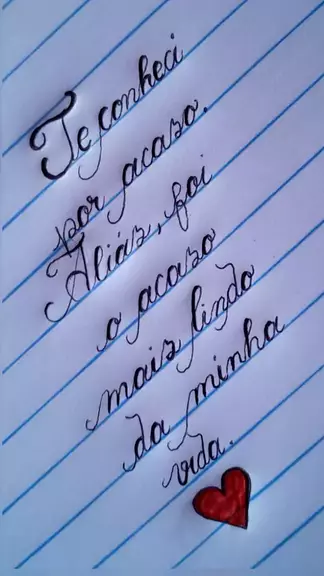 Te conheci
por acaso.
Aliás, foi
o acaso
mais lindo
da minha
vida.